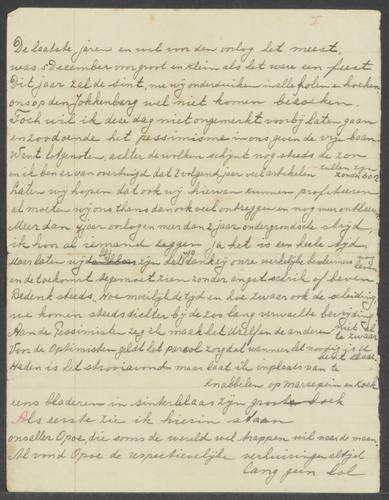 I
De laatste jaren en wel voor den oorlog het meest,
was 5 December voor groot en klein als het ware een feest
Dit jaar zal de Sint, nu wij onderduiken in alle holen en hoeken
ons op den Jokkenberg wel niet komen bezoeken.
Toch wil ik deze dag niet ongemerkt voorbij laten gaan
en zoodoende het pessimisme in ons geven de vrije baan.
Want lotgenoten, achter de wolken schijnt nog steeds de zon
en ik ben er van overtuigd dat 't volgend jaar veel artikelen zullen zijn zonder bon
Laten wij hopen dat ook wij hiervan kunnen profiteeren
al moeten wij ons thans dan ook veel ontzeggen en nog meer ontbeeren
Meer dan 4 jaar oorlog en meer dan 2 jaar ondergrondsche strijd,
ik hoor al iemand zeggen ja het is een heele tijd
Maar laten wij blij zijn dat wij dankzij onze werkelijke beschermers nog leven
en de toekomst tegemoet zien zonder angst schrik of beven
Bedenk steeds, Hoe moeilijk de tijd en hoe zwaar ook de scheiding
we komen steeds dichter bij de zoo lang verwachte bevrijding
Aan de Pessimisten zeg ik maak het U zelf en de anderen niet al te zwaar
Voor de Optimisten geldt het parool zorg dat wanneer het noodig is U bent klaar.
Heden is het strooiavond maar laat ik in plaats van te
knabbelen op marsepein en koek
eens bladeren in sinterklaas zijn groote boek
Als eerste zie ik hierin staan
onze aller Opoe, die soms de wereld wel trappen wil naar de maan
Al vond Opoe de respectievelijke verhuizingen altijd
lang geen lol